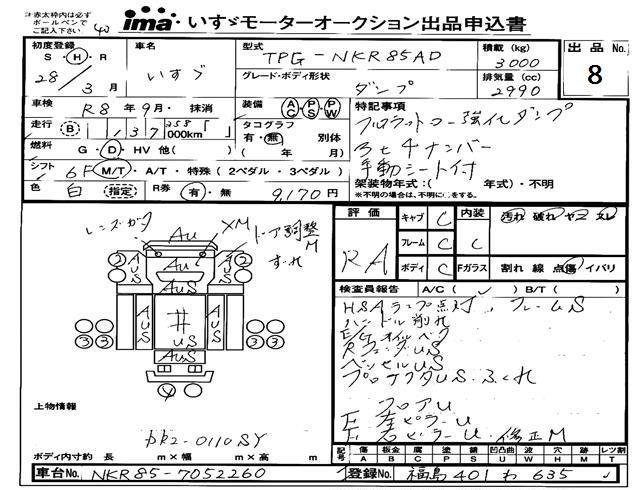 ※赤太枠内は必ず
ボールペンで
ご記入下さい
ima いすゞモーターオークション出品申込書
初度登録
S・H・R
28/3月
車名
いすゞ
型式
TPG-NKR85AD
グレード・ボディ形状
ダンプ
積載 (kg)
3000
排気量 (cc)
2990
出品 No.
8
車検 R8年9月・抹消
走行 B 137 258 000km
燃料 G・D・HV 他( )
シフト 6F M/T・A/T・特殊(2ペダル・3ペダル)
色 白 指定 R券 有・無 9,170円
装備 AC・PS・PW
タコグラフ
有・無 別体
( 年 月)
特記事項
フルフラットロー強化ダンプ
3t 4ナンバー
手動シート付
架装物年式:( 年式)・不明
※不明の場合は、不明に○をする。
評価
RA
キャブ C
フレーム C
ボディ C
内装 C
Fガラス
汚れ 破れ ヤニ スレ
割れ 線 点傷 イバリ
検査員報告 A/C( ✓ ) B/T( )
HSAランプ点灯、フレームUS
ハンドル削れ
E/Gオイルベタ
RフェンダUS
ベッセルUS
プロテクタUS・ふくれ
フロアU
F左ピラーU
F右ピラーU・修正M
レンズガタ
XM
ドア調整
M
ずれ
Au
AuS
AuS
AuS
AuS
AuS
井
US
AuS
2
2
3 3
3 3
Y
上物情報
DK2-0110SY
ボディ内寸約 長 m×幅 m×高 m
記号 傷 A 凹 B 板金 腐 C 塗 P 錆 S 凹凸曲 U 波 W 穴 H 跡 M レツ割 T
車台No. NKR85-7052260
登録No. 福島 401 わ 635